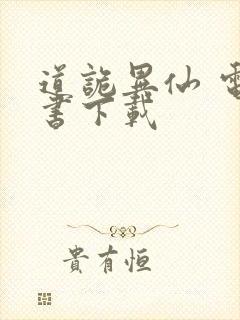 道詭異仙 電
書下載
貴有恒